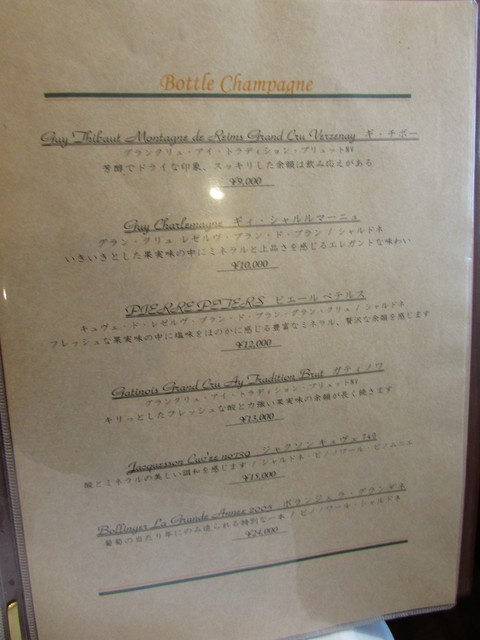 Bottle Champagne
Guy Thibaut Montagne de Reims Grand Cru Verzenay ギ・チボー
グランクリュ・アイ・トラディション・ブリュットNV
芳醇でドライな印象、スッキリした余韻は飲み応えがある
¥9,000
Guy Charlemagne ギィ・シャルルマーニュ
グラン・クリュ レゼルヴ・ブラン・ド・ブラン / シャルドネ
いきいきとした果実味の中にミネラルと上品さを感じるエレガントな味わい
¥10,000
PIERRE PETERS ピエール ペテルス
キュヴェ・ド・レゼルヴ・ブラン・ド・ブラン・グラン・クリュ / シャルドネ
フレッシュな果実味の中に塩味をほのかに感じる豊富なミネラル、贅沢な余韻を感じます
¥12,000
Gatinois Grand Cru Ay Tradition Brut ガティノワ
グランクリュ・アイ・トラディション・ブリュットNV
キリッとしたフレッシュな酸と力強い果実味の余韻が長く続きます
¥13,000
Jacquesson Cuvee no739 ジャクソン キュヴェ
酸とミネラルの美しい調和を感じます / シャルドネ・ピノノワール・ピノムニエ
¥15,000
Bollinger La Grande Annee 2005 ボランジェ ラ・グランダネ
葡萄の当たり年にのみ造られる特別な一本 / ピノノワール・シャルドネ
¥24,000